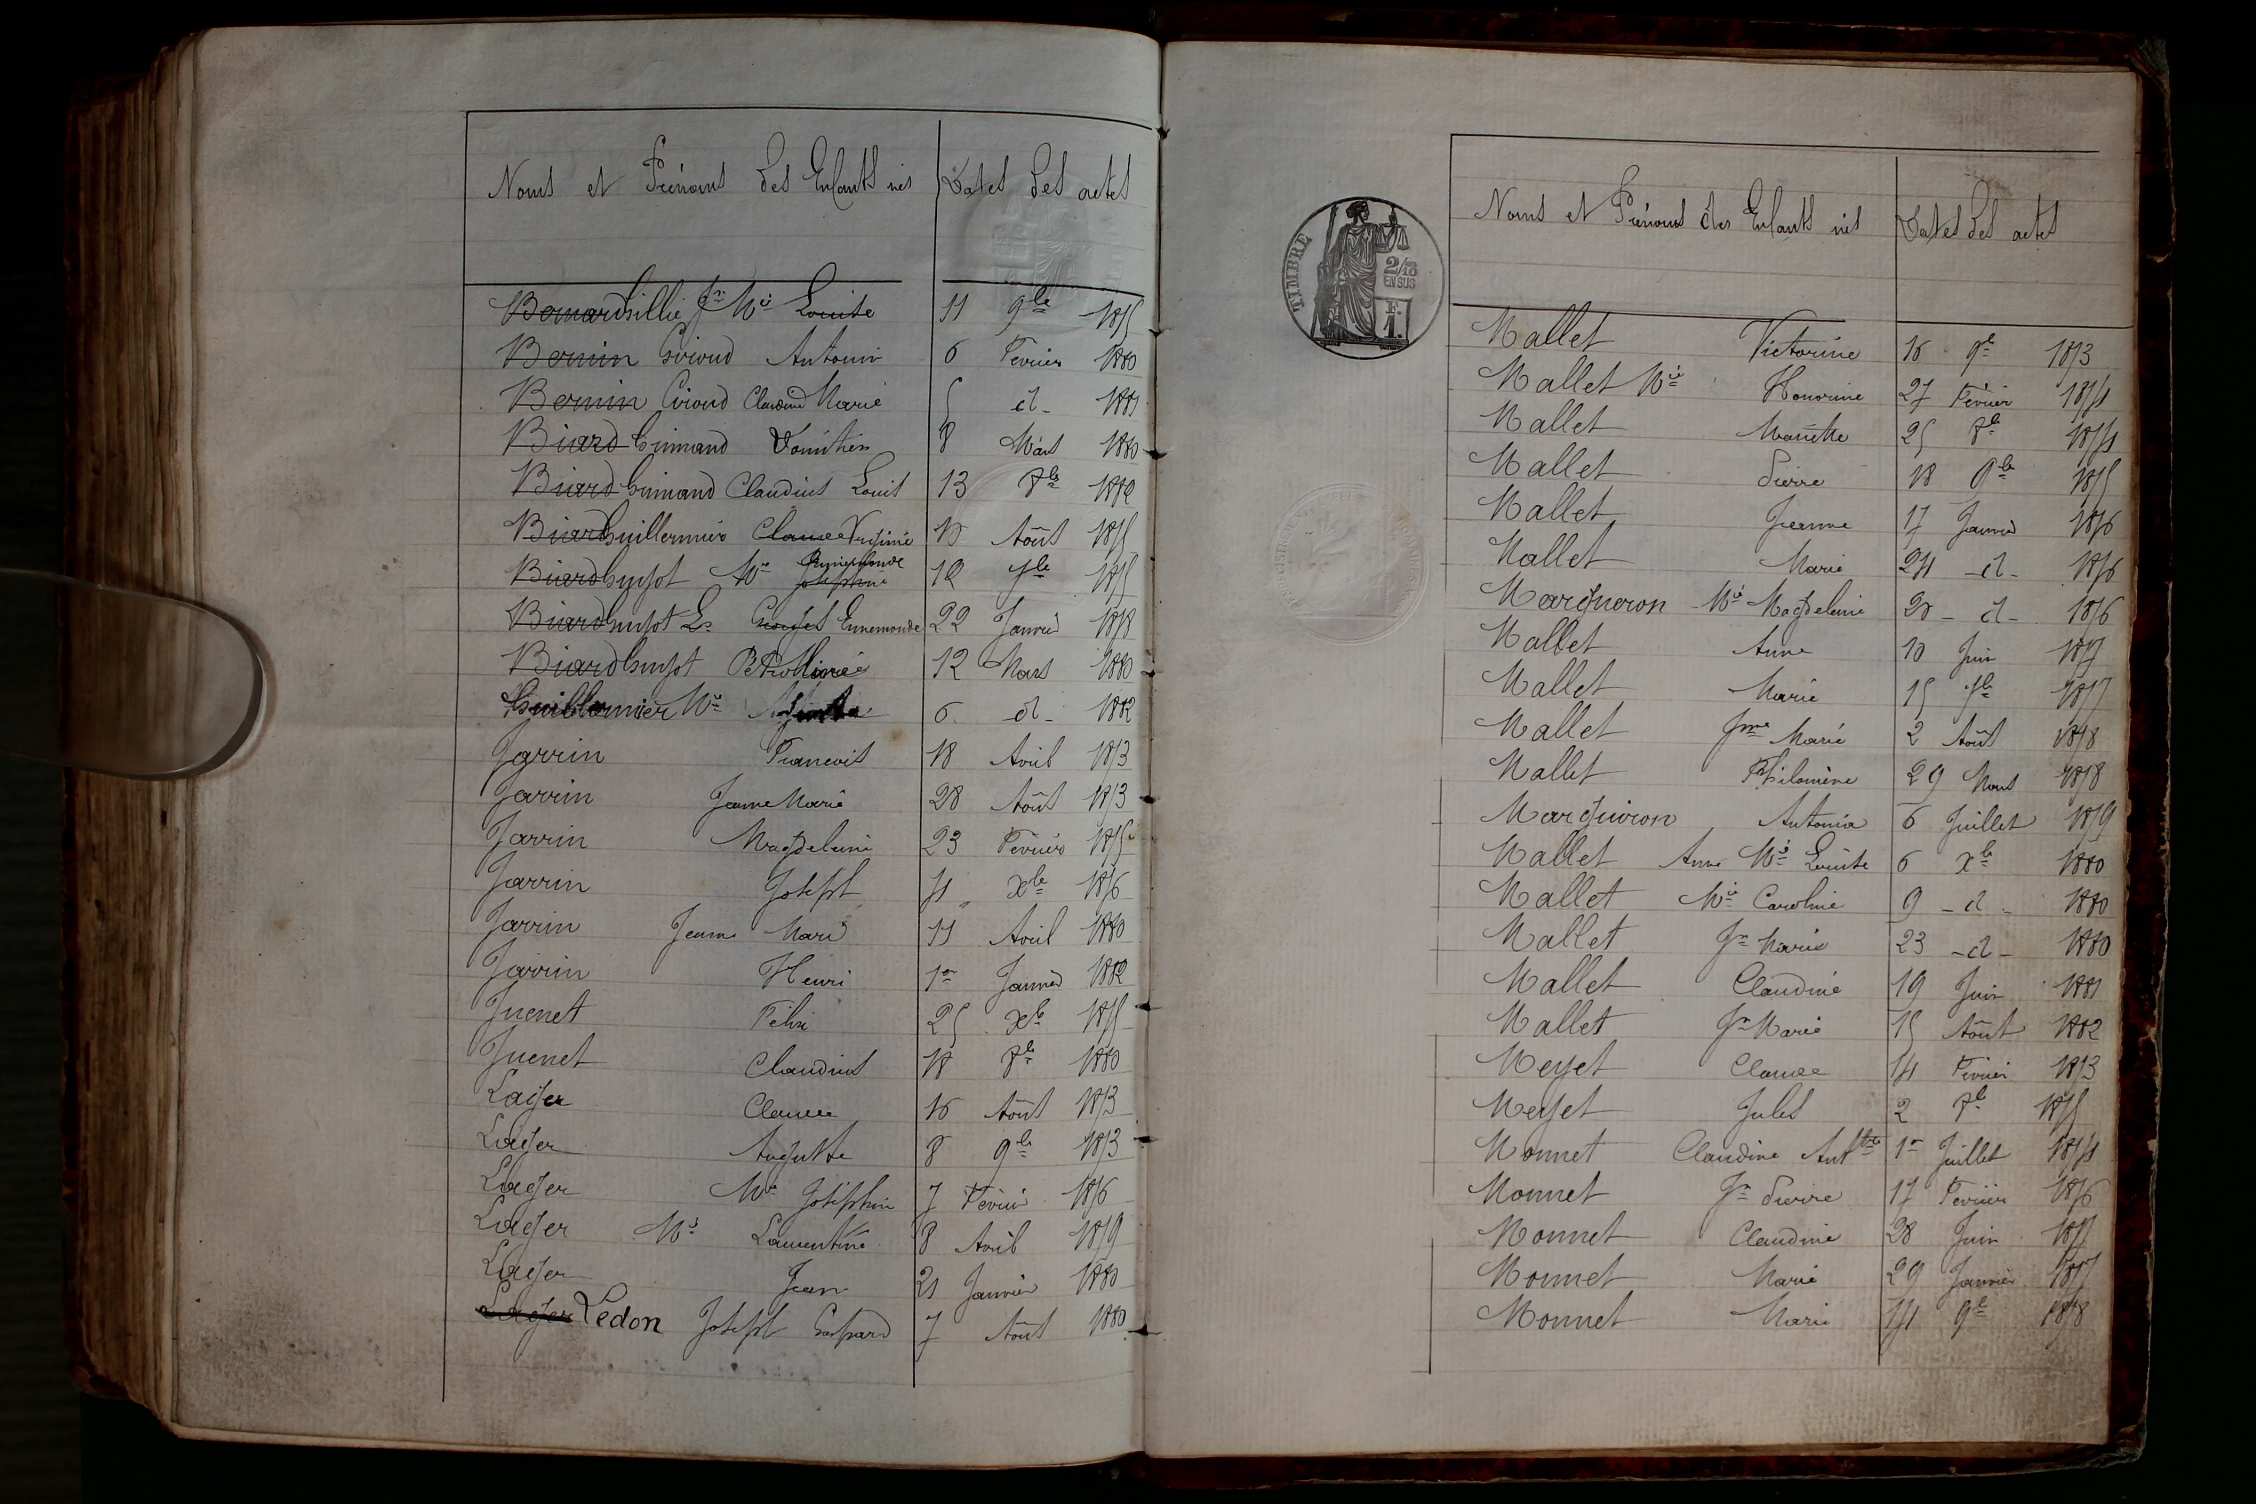 Noms et Prénoms des Enfants nés Dates des actes
Bernard Gillie Jn Mie Louise 11 9bre 1875
Bernin Giroud Antonin 6 Février 1880
Bernin Giroud Claudine Marie 5 d- 1881
Biard Guinand 8 Mars 1880
Biard Guinand Claudius Louis 13 8bre 1882
Biard Guillermier Claude Août 1875
Biard Guyot Mie Rosemonde Joséphine 7bre 1875
Biard Guyot Ls Georges Ennemonde 22 Janvier 1878
Biard Guyot Marie 12 Mars 1880
Guillermier Mie 6 d- 1882
Jarrin François 18 Avril 1873
Jarrin Jeanne Marie 28 Août 1873
Jarrin Magdeleine 23 Février 1875
Jarrin Joseph 4 Xbre 1876
Jarrin Jeanne Marie 11 Avril 1880
Jarrin Henri 1er Janvier 1882
Juenet Félix 25 Xbre 1875
Juenet Claudius 18 8bre 1880
Lager Claude 16 Août 1873
Lager Auguste 8 9bre 1873
Lager Mie Joséphine 7 Février 1876
Lager Mie Laurentine 8 Avril 1879
Lager Jean 21 Janvier 1880
Lager Lédon Joseph Gaspard 7 Août 1880
TIMBRE
2/10
EN SUS
F.
1.
Noms et Prénoms des Enfants nés Dates des actes
Mallet Victorine 16 9bre 1873
Mallet Mie Honorine 27 Février 1874
Mallet Mariette 25 8bre 1874
Mallet Pierre 18 9bre 1875
Mallet Jeanne 17 Janvier 1876
Mallet Marie 24 -d- 1876
Margueron Mie Magdeleine -d- 1876
Mallet Anne 10 Juin 1877
Mallet Marie 15 7bre 1877
Mallet Jnne Marie 2 Août 1878
Mallet Philomène 29 Mars 1878
Marguiron Antonia 6 Juillet 1879
Mallet Anne Mie Louise 6 Xbre 1880
Mallet Mie Caroline 9 -d- 1880
Mallet Jn Marie 23 -d- 1880
Mallet Claudine 19 Juin 1881
Mallet Jn Marie 15 Août 1882
Meyet Claude 14 Février 1873
Meyet Jules 2 8bre 1875
Monnet Claudine Anttte 1er Juillet 1874
Monnet Jn Pierre 17 Février 1876
Monnet Claudine 28 Juin 1877
Monnet Marie 29 Janvier 1877
Monnet Marie 14 9bre 1878